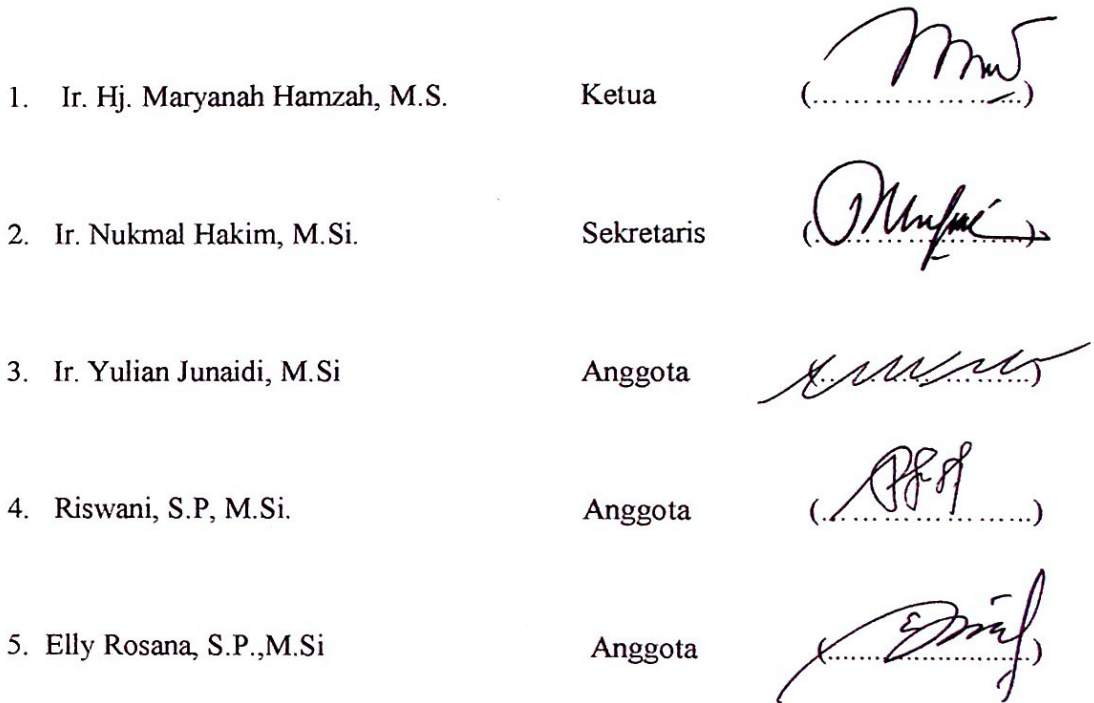 1. Ir. Hj. Maryanah Hamzah, M.S. Ketua (........................)
2. Ir. Nukmal Hakim, M.Si. Sekretaris (........................)
3. Ir. Yulian Junaidi, M.Si Anggota (........................)
4. Riswani, S.P, M.Si. Anggota (........................)
5. Elly Rosana, S.P.,M.Si Anggota (........................)